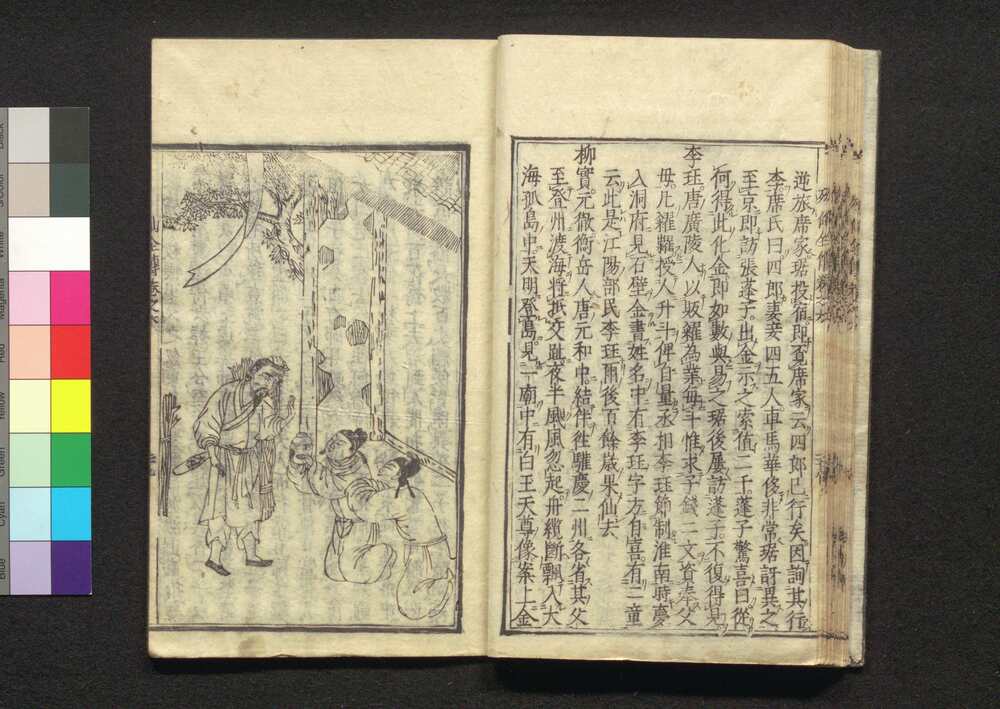 逆旅席家琚投宿即至席家云四郎已行矣因詢其行
李席氏曰四郎妻妾四五人車馬華侈非常琚訝異之
至京即訪張蓬子出金示之索值二千蓬子驚喜曰從
何得此化金即如數與易之琚後屢訪蓬子不復得見
李
珏唐廣陵人以販糴為業每斗惟求子錢二文資奉父
母凡糴糶授人升斗俾自量丞相李珏節制淮南時夢
入洞府見石壁金書姓名中有李珏字方自喜有二童
云此是江陽部民李珏爾後百餘歲果仙去
柳
實元徹衡岳人唐元和中結伴往驩慶二州各省其父
至登州渡海將抵交趾夜半颶風忽起舟纜斷飄入大
海孤島中天明登島見一廟中有白玉天尊像案上金
Black
3/Color
White
Magenta
Red
Yellow
Green
Cyan
Blue